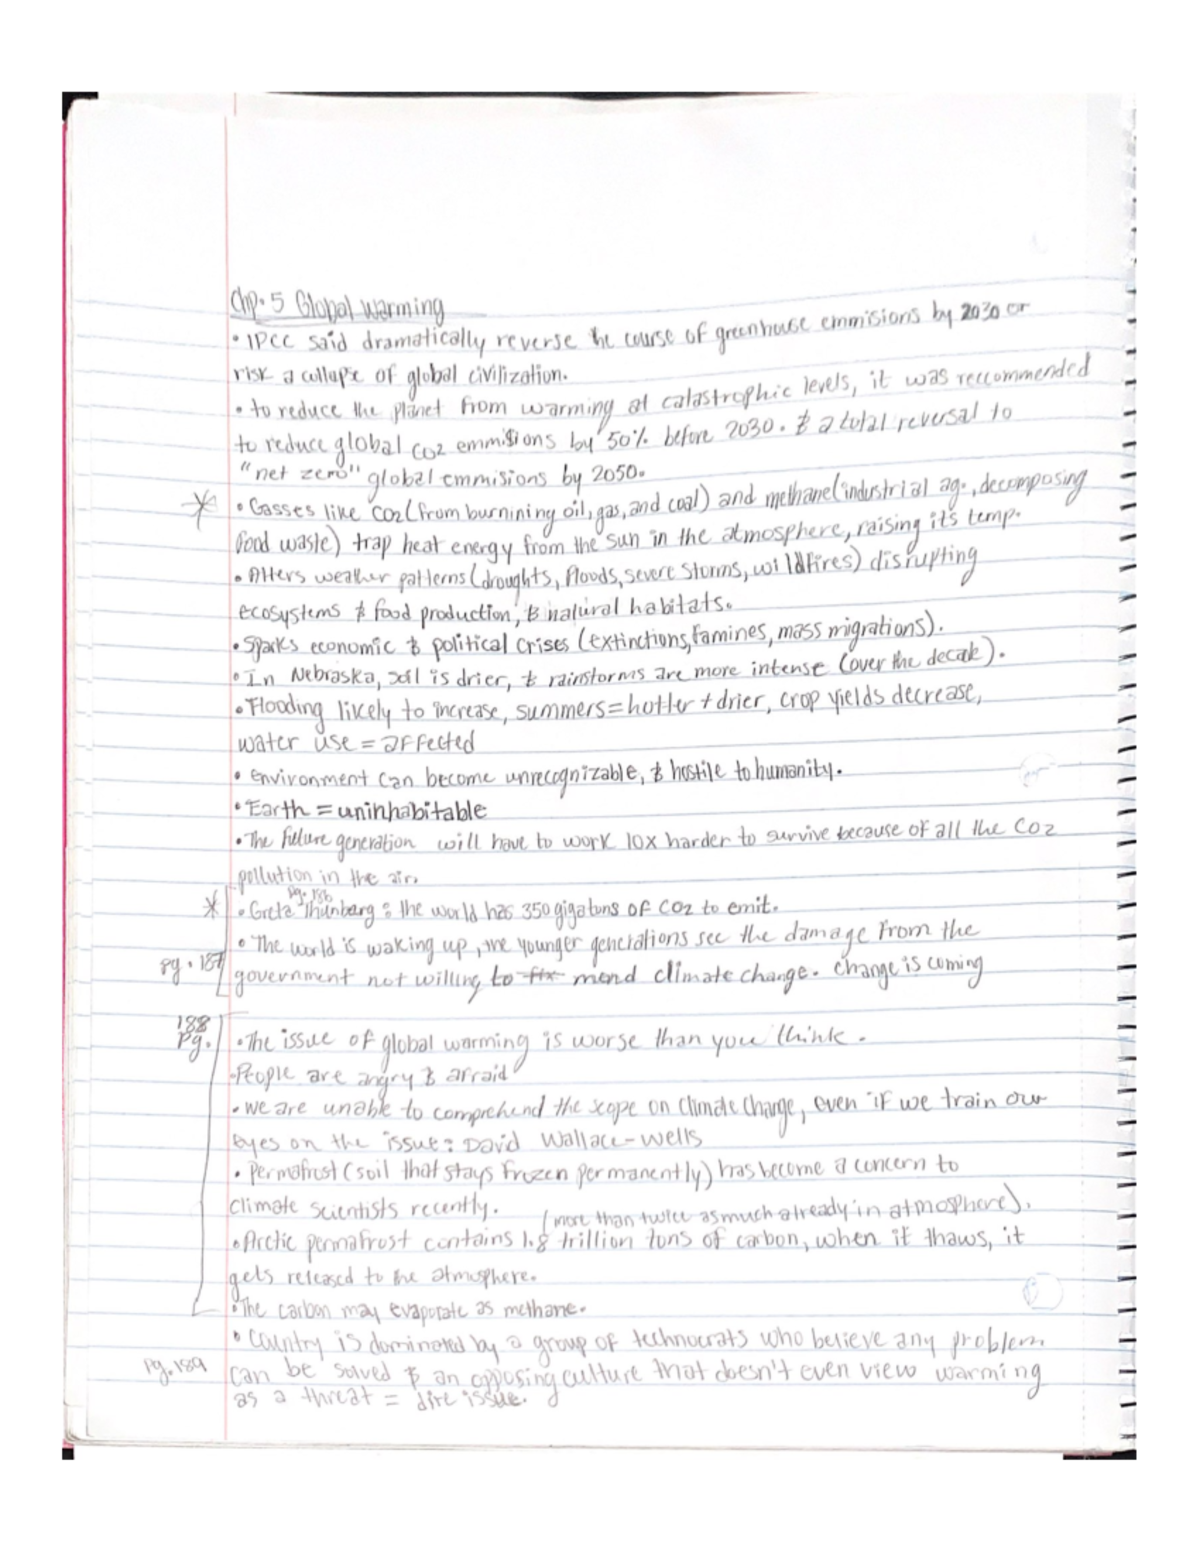 Chp. 5 Global Warming
• IPCC said dramatically reverse the course of greenhouse emmisions by 2030 or
risk a collapse of global civilization.
• to reduce the planet from warming at catastrophic levels, it was reccommended
to reduce global CO2 emmisions by 50% before 2030. & a total reversal to
"net zero" global emmisions by 2050.
* • Gasses like CO2 (from burnining oil, gas, and coal) and methane (industrial ag., decomposing
food waste) trap heat energy from the sun in the atmosphere, raising it's temp.
• Alters weather patterns (droughts, floods, severe storms, wildfires) disrupting
ecosystems & food production, & natural habitats.
• Sparks economic & political crises (extinctions, famines, mass migrations).
• In Nebraska, soil is drier, & rainstorms are more intense (over the decade).
• Flooding likely to increase, summers = hotter + drier, crop yields decrease,
water use = affected
• environment can become unrecognizable, & hostile to humanity.
• Earth = uninhabitable
• The future generation will have to work 10x harder to survive because of all the CO2
pollution in the air.
pg. 186
* • Greta Thunberg: the world has 350 gigatons of CO2 to emit.
• The world is waking up, the younger generations see the damage from the
pg. 187 government not willing to fix mend climate change. change is coming
188
pg. • The issue of global warming is worse than you think.
• People are angry & afraid
• we are unable to comprehend the scope on climate change, even if we train our
eyes on the issue: David Wallace-Wells
• permafrost (soil that stays frozen permanently) has become a concern to
climate scientists recently.
(more than twice as much already in atmosphere).
• Arctic permafrost contains 1.8 trillion tons of carbon, when it thaws, it
gets released to the atmosphere.
• The carbon may evaporate as methane.
• Country is dominated by a group of technocrats who believe any problem
pg. 189 can be solved & an opposing culture that doesn't even view warming
as a threat = dire issue.